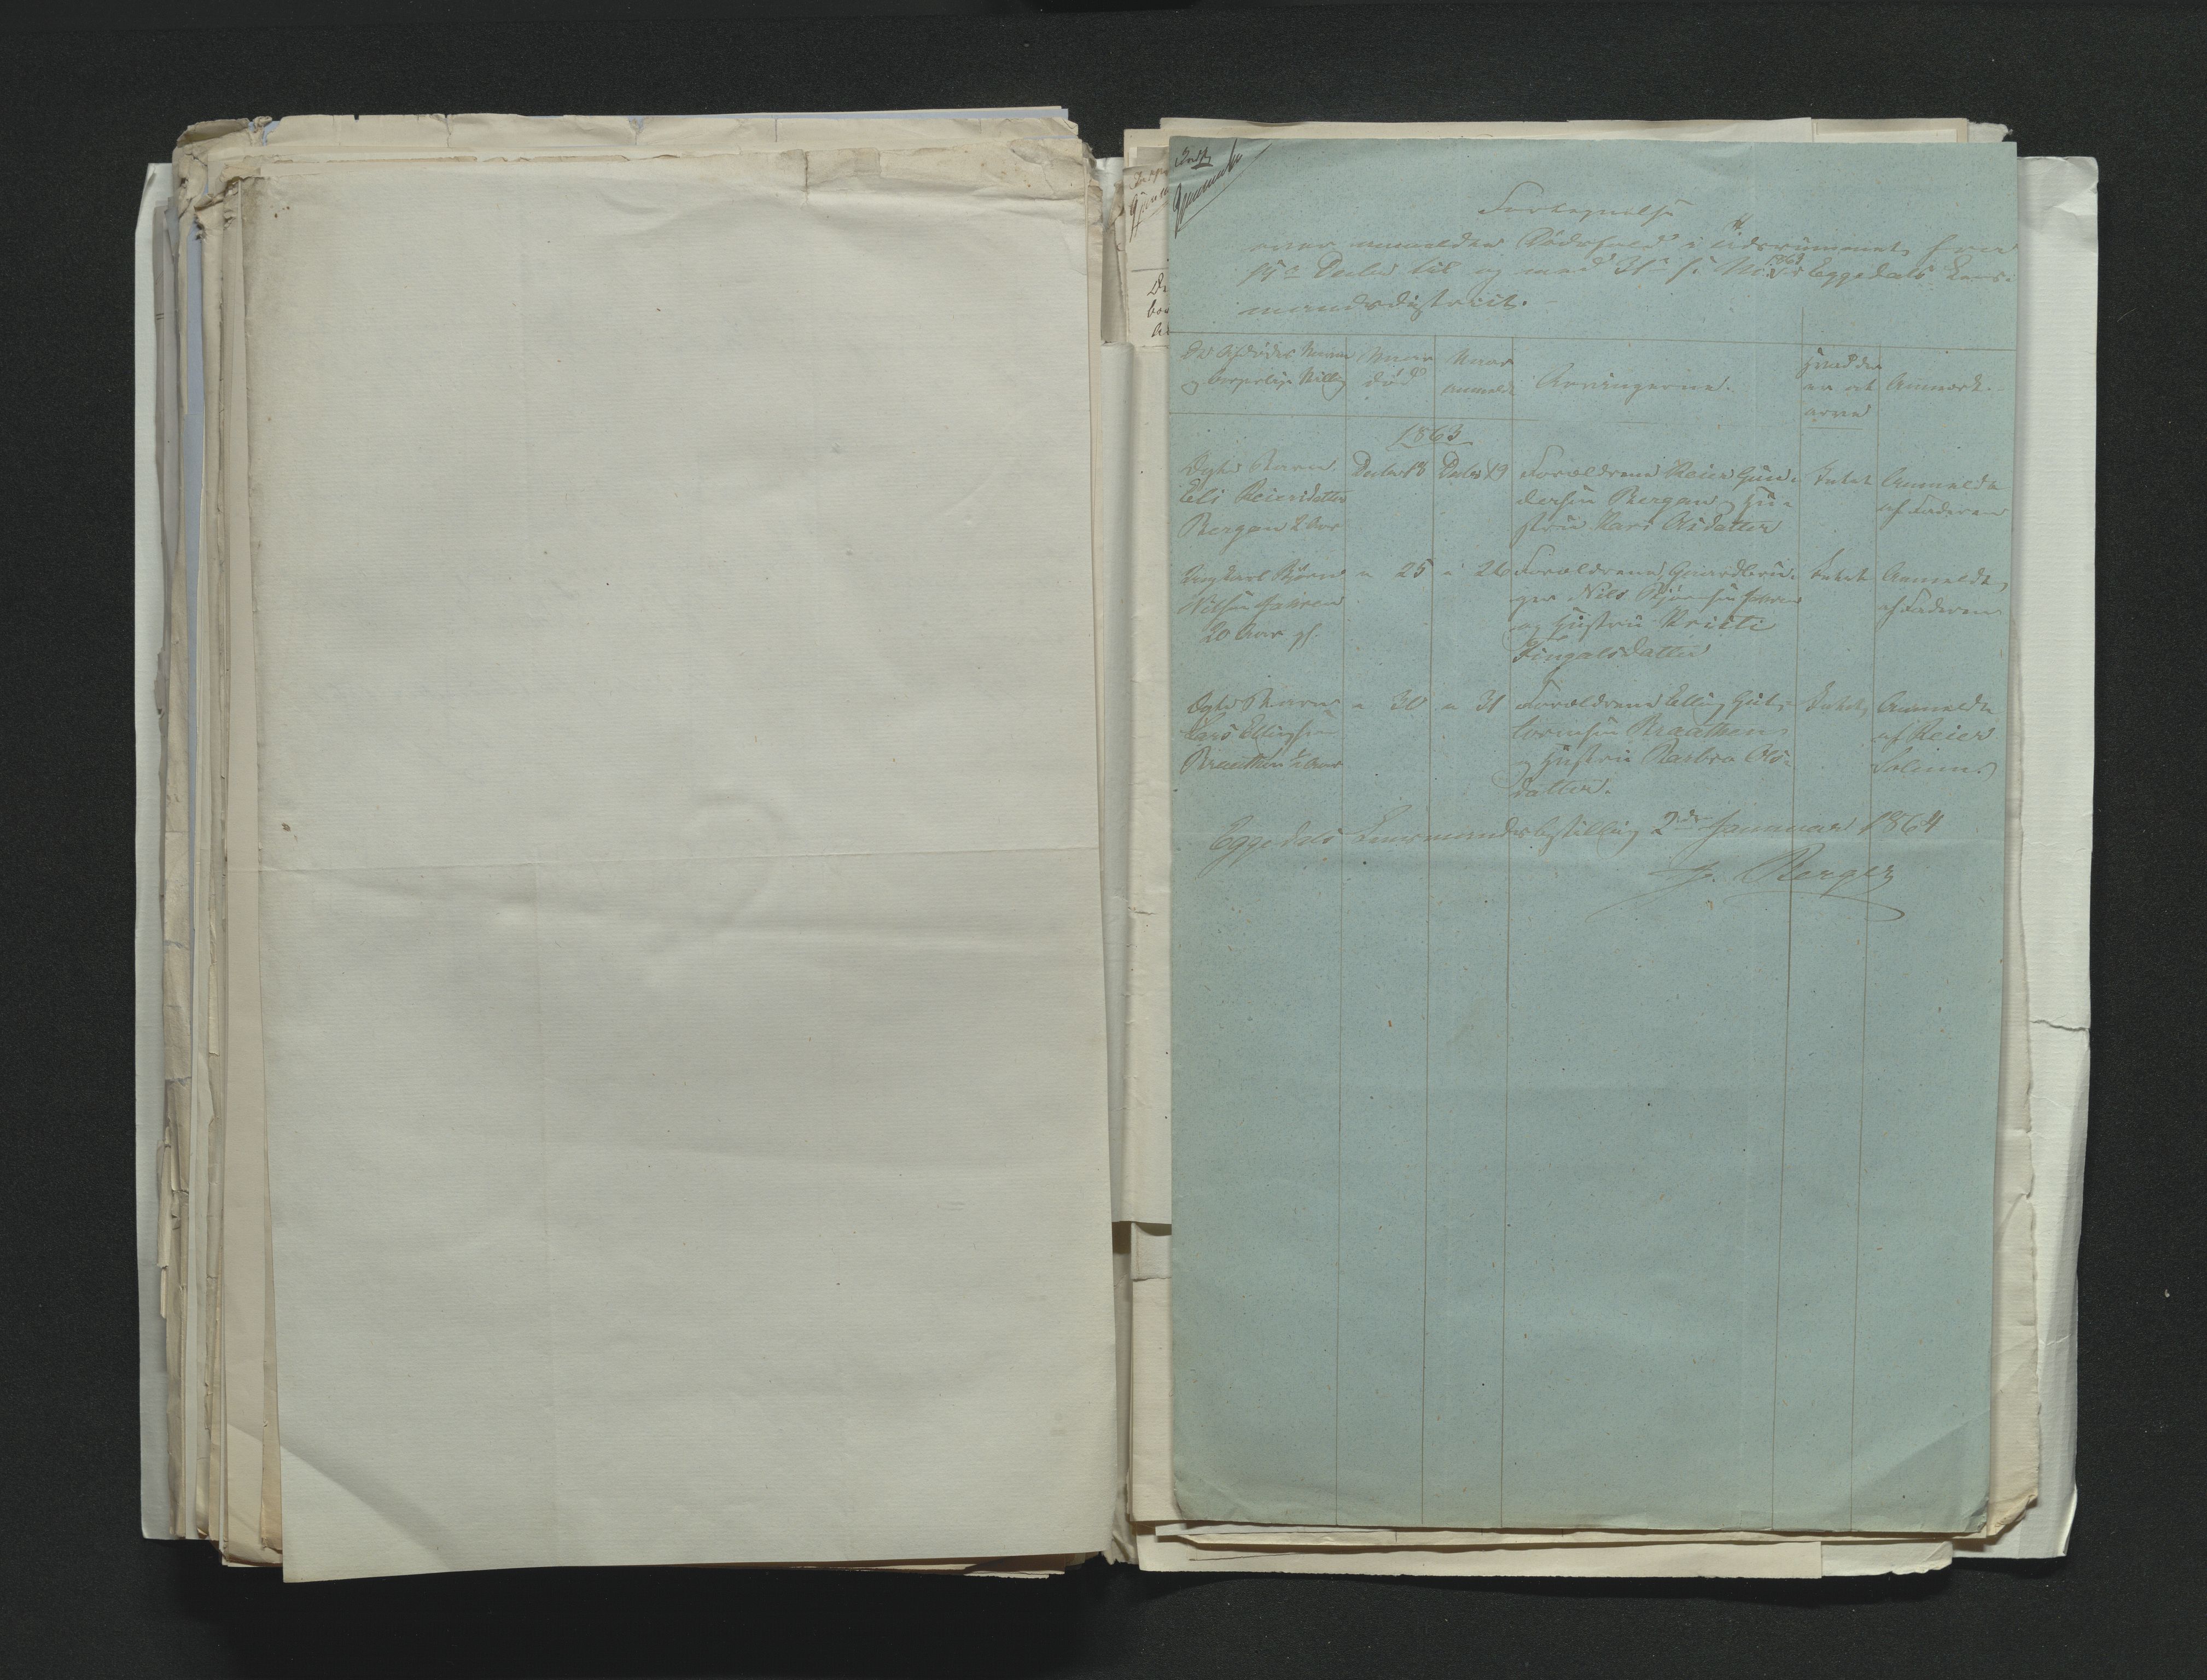 Fortegnelse
over anmeldte Dødsfald i Tidsrummet fra
15de Decbr til og med 31te s. M. 1863 i Eggedals Lens-
mandsdistrict.
De Afdødes Navn
og borgerlige Stilling
Naar
død
Naar
anmeldt
Arvingerne.
Hvad der
er at
arve
Anmærk.
1863
Dagb. Barn
Eli Reiersdatter
Bergan 2 Aar
Decbr 18
Decbr 19
Forældrene Reier Gun-
dersen Bergan og Hu-
stru Kari Olsdatter
Intet
Anmeldt
af Faderen
Ungkarl Bjørn
Nilsen
20 Aar gl.
" 25
" 26
Forældrene, Gaardbru-
ger Nils Bjørnsen
og Hustru Kristi
Fingalsdatter
Intet
Anmeldt
af Faderen
Barn
Lars Ellingsen
Braathen ½ Aar
" 30
" 31
Forældrene Elling Gut-
tormsen Braathen
og Hustru Barbro Ols-
datter.
Intet
Anmeldt
af Reier
Solum.
Eggedals Lensmandsbestilling 2den Januar 1864
Berger